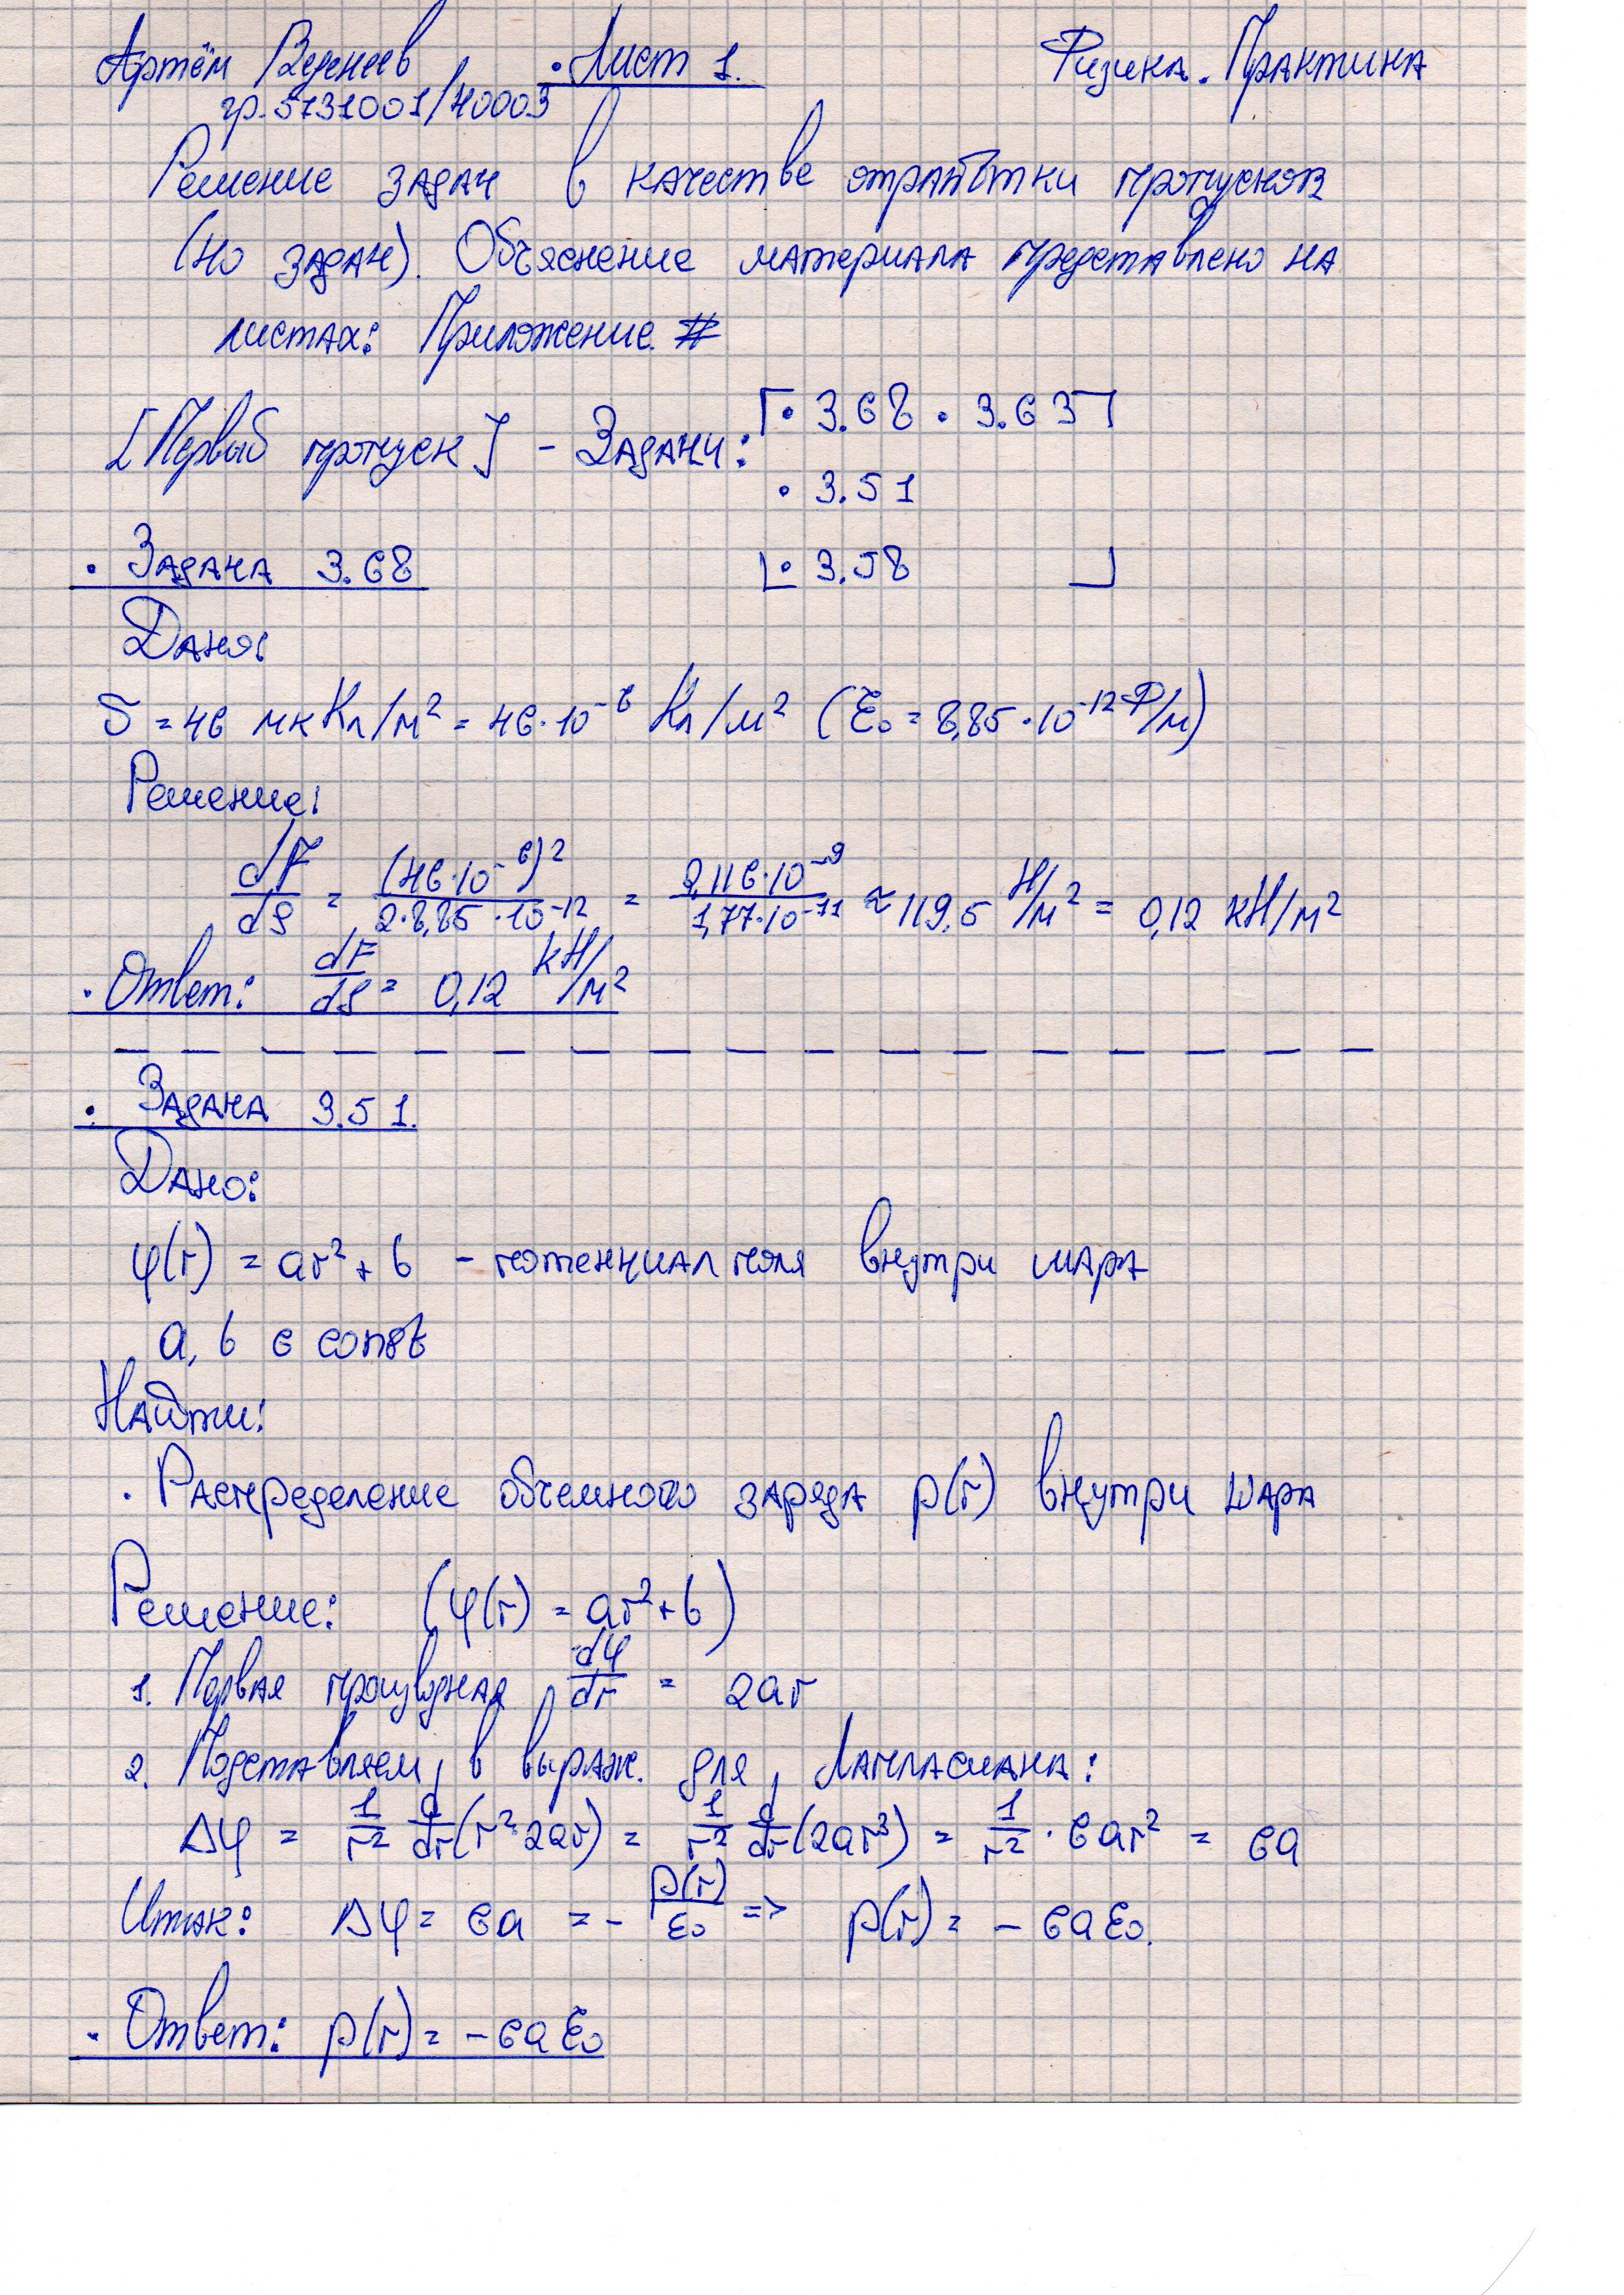 Артём Веденеев • Лист 1. Физика. Практика
гр. 5131001/40003
Решение задач в качестве отработки пропусков
(40 задач). Объяснение материала представлено на
листах: Приложение #
[Первый пропуск] – Задачи: • 3.68 • 3.63
• 3.51
• 3.58
• Задача 3.68
Дано:
σ = 46 мкКл/м² = 46·10⁻⁶ Кл/м² (ε₀ = 8,85·10⁻¹² Ф/м)
Решение:
dF/dS = (46·10⁻⁶)²/2·8,85·10⁻¹² = 2,116·10⁻⁹/1,77·10⁻¹¹ ≈ 119,5 Н/м² = 0,12 кН/м²
• Ответ: dF/dS = 0,12 кН/м²
• Задача 3.51.
Дано:
φ(r) = ar² + b – потенциал поля внутри шара
a, b ∈ const
Найти:
• Распределение объемного заряда ρ(r) внутри шара
Решение: (φ(r) = ar² + b)
1. Первая производная dφ/dr = 2ar
2. Подставляем в выраж. для Лапласиана:
Δφ = 1/r² d/dr(r²·2ar) = 1/r² d/dr(2ar³) = 1/r² · 6ar² = 6a
Итак: Δφ = 6a = – ρ(r)/ε₀ => ρ(r) = – 6aε₀.
• Ответ: ρ(r) = – 6aε₀